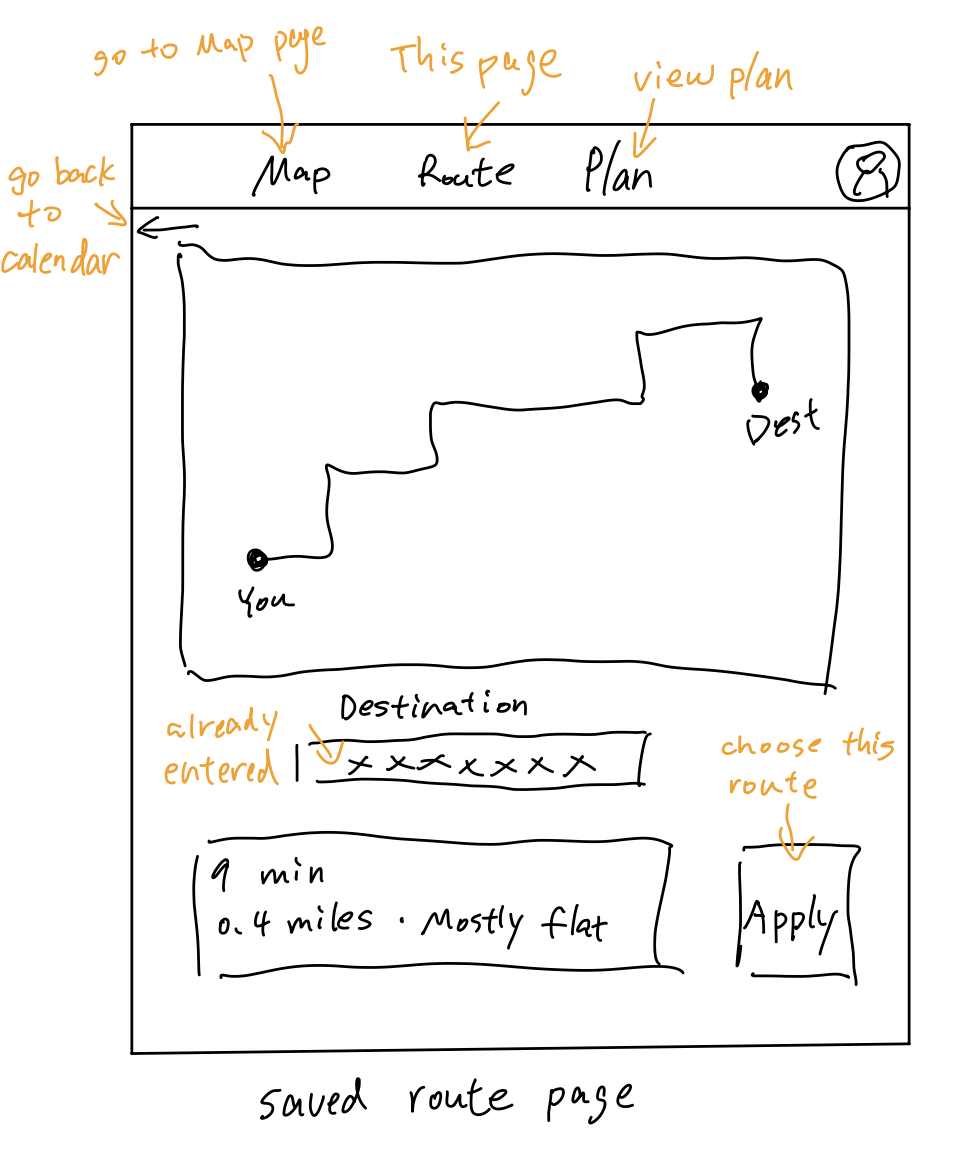 go to Map page
This page
view plan
Map Route Plan
go back
to
calendar
Dest
You
Destination
already
entered
xxxxxxx
choose this
route
9 min
0.4 miles · Mostly flat
Apply
saved route page